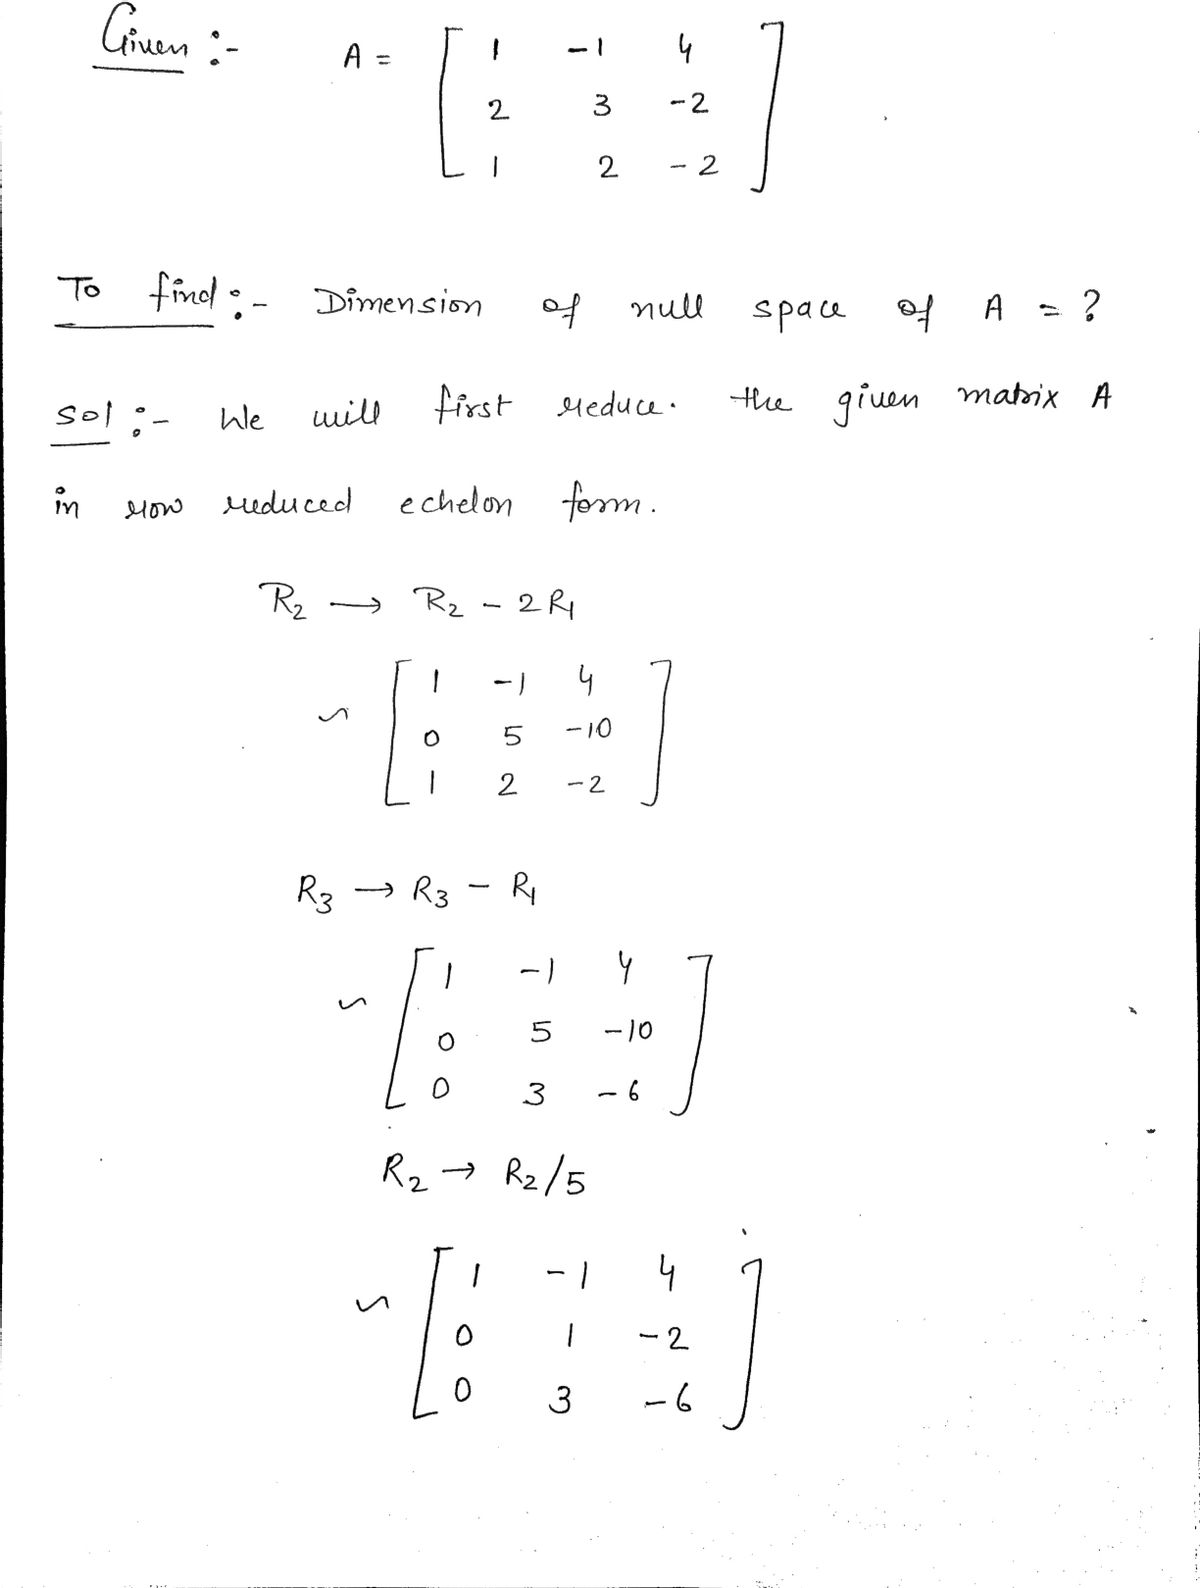 Given :-
A = [ 1 -1 4
2 3 -2
1 2 -2 ]
To find :- Dimension of null space of A = ?
Sol :- We will first reduce. the given matrix A
in row reduced echelon form.
R₂ → R₂ - 2R₁
~ [ 1 -1 4
0 5 -10
1 2 -2 ]
R₃ → R₃ - R₁
~ [ 1 -1 4
0 5 -10
0 3 -6 ]
R₂ → R₂/5
~ [ 1 -1 4
0 1 -2
0 3 -6 ]